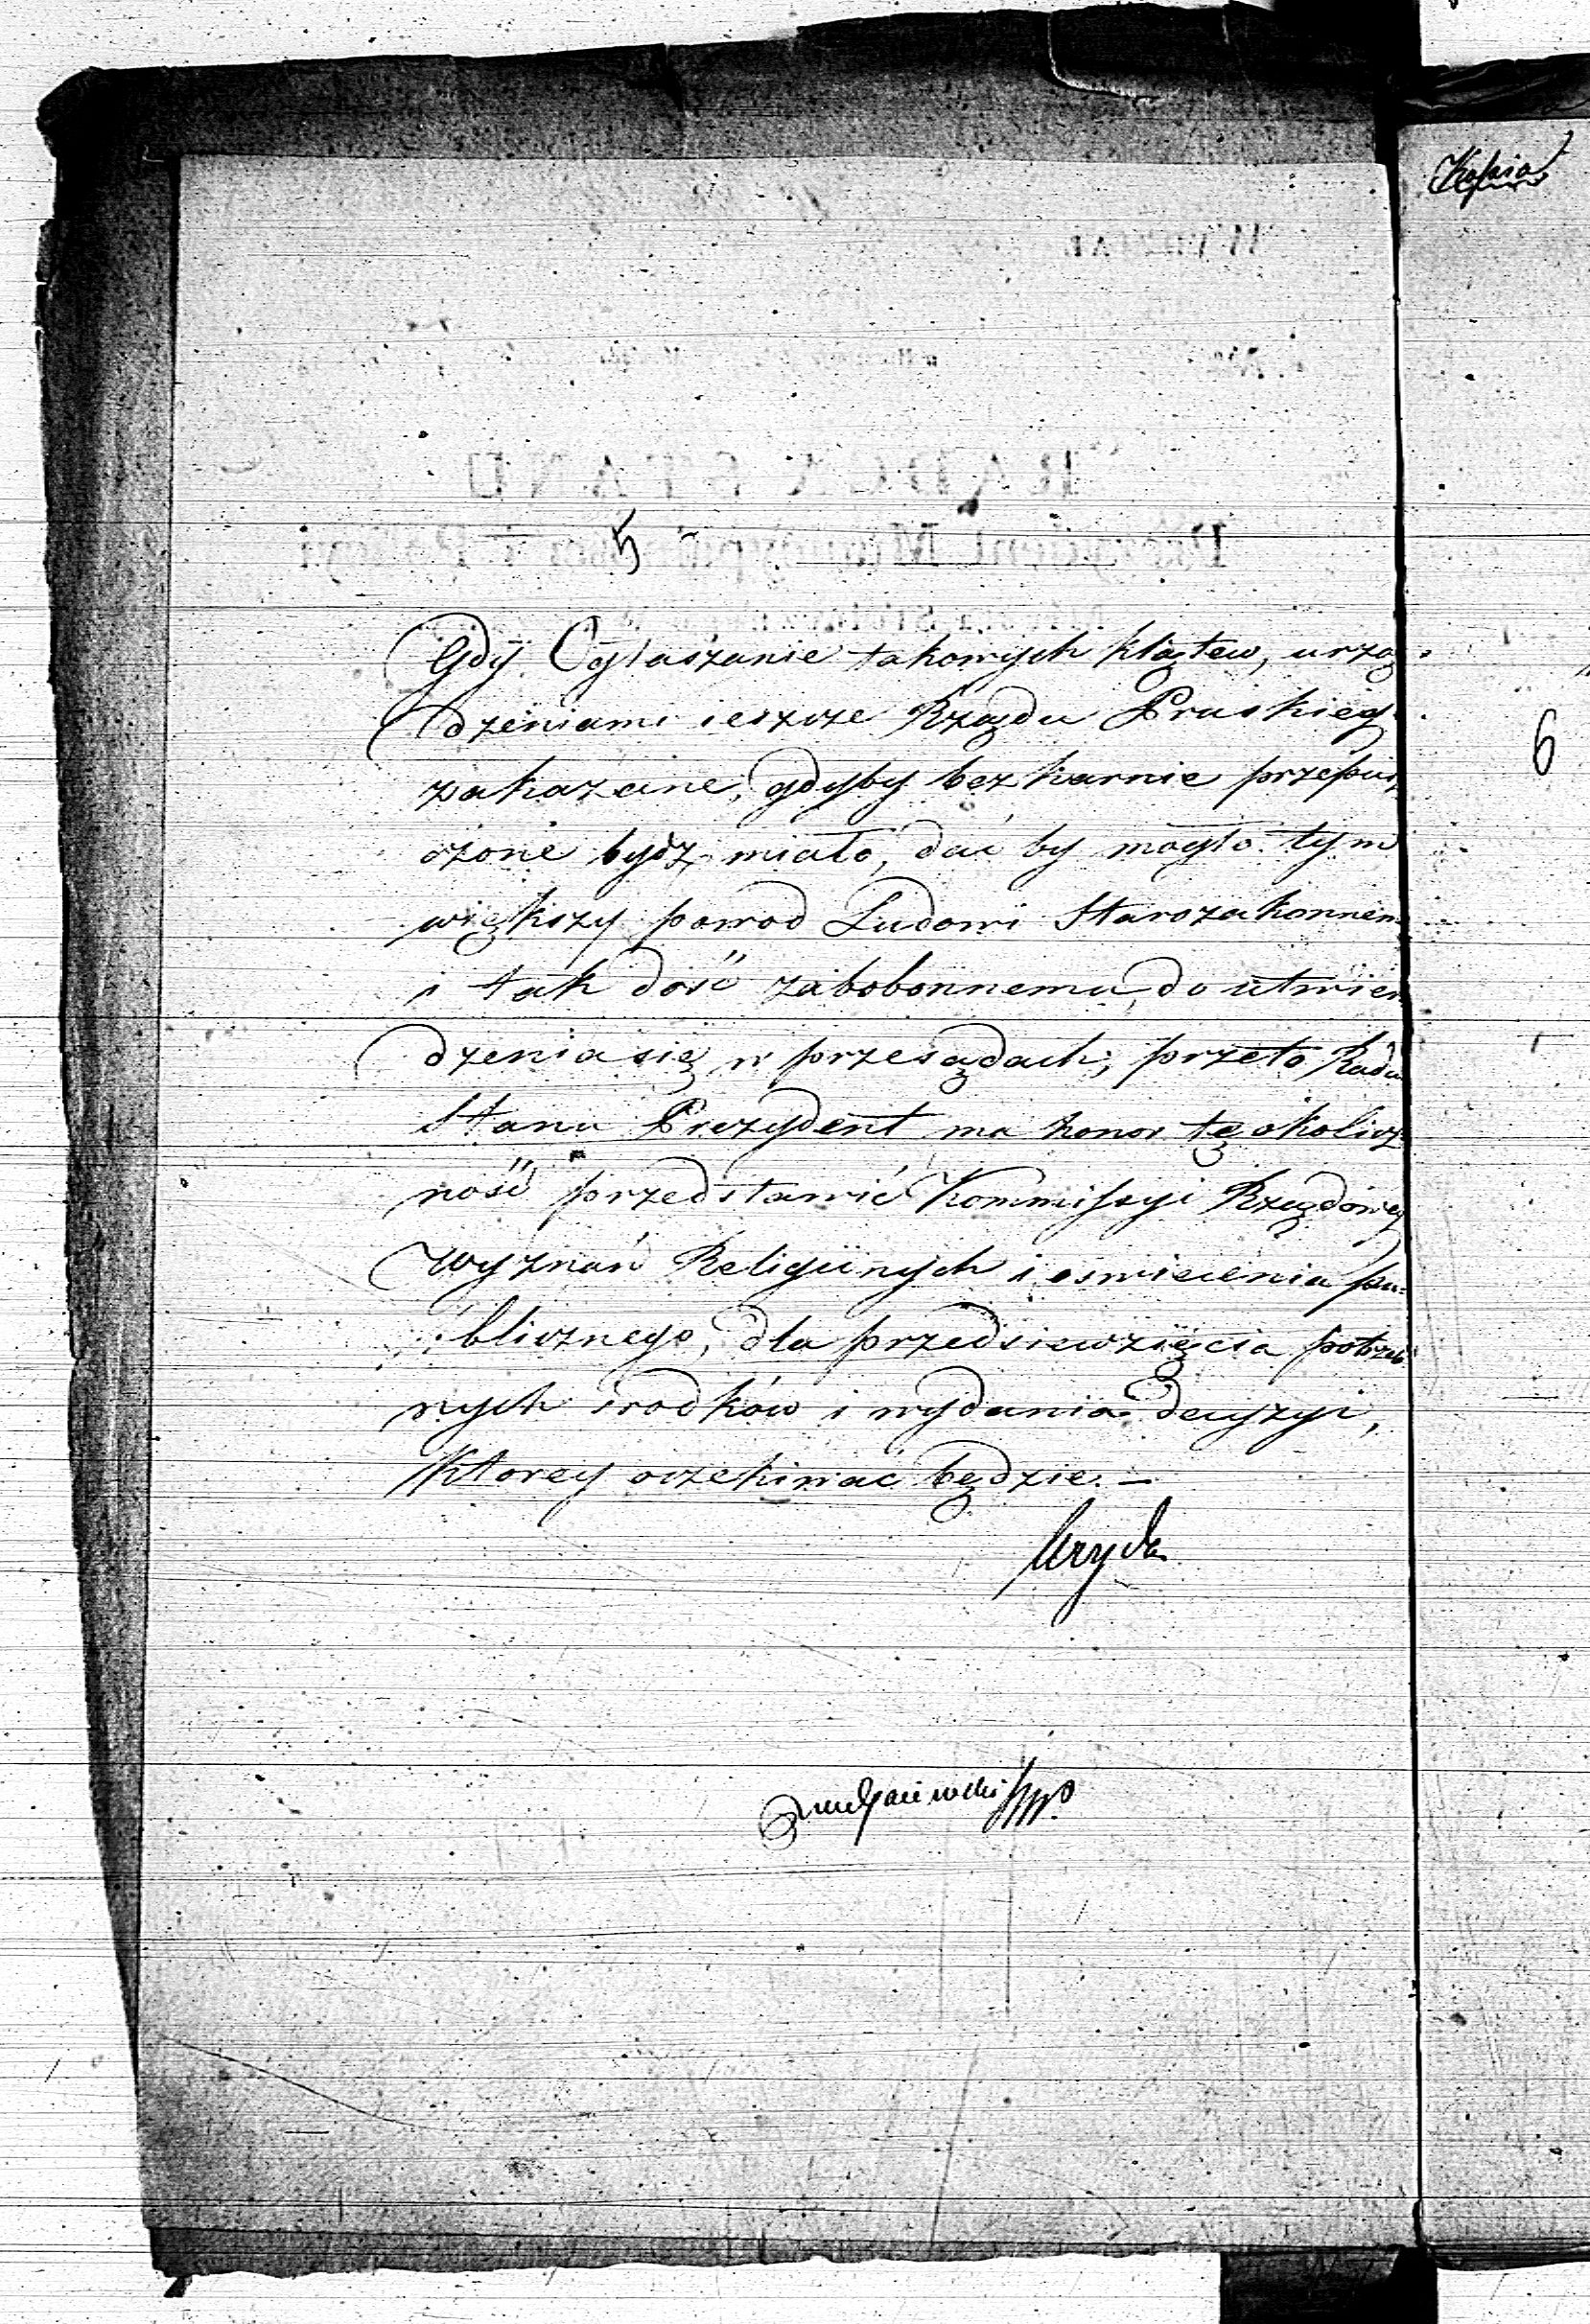 Kopia
5
6
Gdy Ogłaszanie takowych klątew, urzą
dzeniami ieszcze Rządu Pruskieg
zakazane, gdyby bezkarnie przepus
czone bydz miało, dać by mogło tym
większy powod Ludowi Starozakonnem
i tak dość zabobonnemu do utwier
dzenia się w przesądach; przeto Radca
Stanu Prezydent ma honor tę okolicz
ność przedstawić Kommissyi Rządowey
Wyznań Religiinych i oswiecenia pu=
blicznego, dla przedsiewzięcia potrzeb
nych srodków i wydania decyzyi,
Ktorey oczekiwać będzie.—